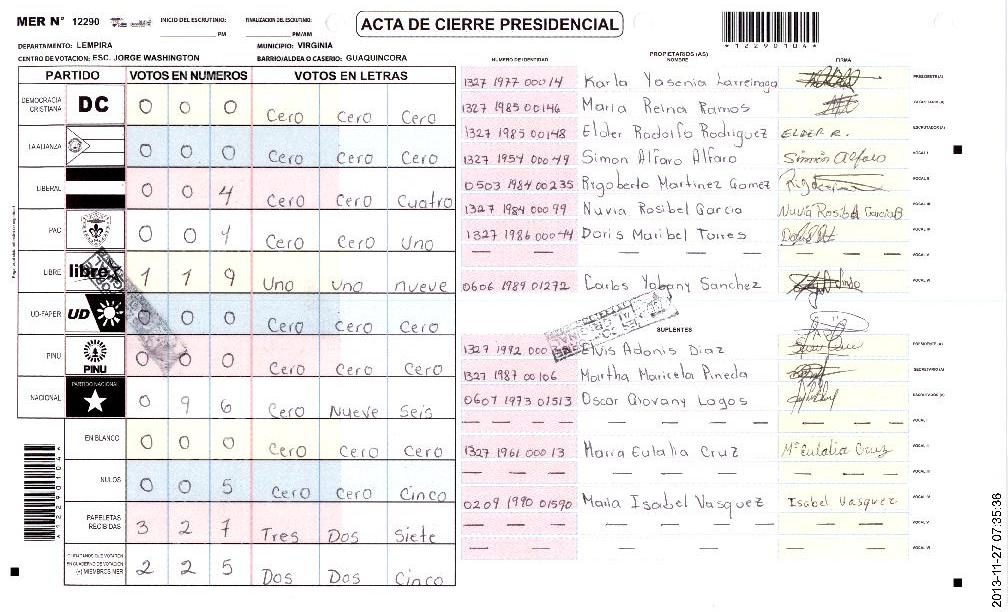 MER N° 12290
INICIO DEL ESCRUTINIO:
PM
FINALIZACION DEL ESCRUTINIO:
PM/AM
ACTA DE CIERRE PRESIDENCIAL
*12290104*
DEPARTAMENTO: LEMPIRA
MUNICIPIO: VIRGINIA
CENTRO DE VOTACION: ESC. JORGE WASHINGTON
BARRIO/ALDEA O CASERIO: GUAQUINCORA
PARTIDO VOTOS EN NUMEROS VOTOS EN LETRAS
DEMOCRACIA CRISTIANA DC 0 0 0 Cero Cero Cero
LA ALIANZA 0 0 0 Cero Cero Cero
LIBERAL 0 0 4 Cero Cero Cuatro
PAC 0 0 1 Cero Cero Uno
LIBRE libre 1 1 9 Uno uno nueve
UD-FAPER UD 0 0 0 Cero Cero Cero
PINU PINU 0 0 0 Cero Cero Cero
NACIONAL PARTIDO NACIONAL 0 9 6 Cero Nueve Seis
EN BLANCO 0 0 0 Cero Cero Cero
NULOS 0 0 5 Cero Cero Cinco
PAPELETAS RECIBIDAS 3 2 7 Tres Dos Siete
CIUDADANOS QUE VOTARON EN CUADERNO DE VOTACION (+) MIEMBROS MER 2 2 5 Dos Dos Cinco
*12290104*
PROPIETARIOS (AS)
NUMERO DE IDENTIDAD NOMBRE FIRMA
1327 1977 00014 Karla Yasenia Larreinaga PRESIDENTE (A)
1327 1985 00146 Maria Reina Ramos SECRETARIO (A)
1327 1985 00148 Elder Rodolfo Rodriguez ELDER R. ESCRUTADOR (A)
1327 1954 00049 Simon Alfaro Alfaro Simón Alfaro VOCAL I
0503 1984 00235 Rigoberto Martinez Gomez VOCAL II
1327 1984 00099 Nuvia Rosibel Garcia Nuvia Rosibel Garcia B VOCAL III
1327 1986 00044 Doris Maribel Torres VOCAL IV
— — — — — — — — VOCAL V
0606 1989 01272 Carlos Yobany Sanchez VOCAL VI
SUPLENTES
1327 1992 000 Elvis Adonis Diaz PRESIDENTE (A)
1327 1987 00106 Martha Maricela Pineda SECRETARIO (A)
0607 1973 01513 Oscar Giovany Lagos ESCRUTADOR (A)
— — — — — — — — VOCAL I
1327 1961 00013 Maria Eulalia Cruz Mª Eulalia Cruz VOCAL II
— — — — — — — — VOCAL III
0209 1990 01590 Maria Isabel Vasquez Isabel Vasquez VOCAL IV
— — — — — — — — VOCAL V
— — — — — — — — VOCAL VI
2013-11-27 07:35:36